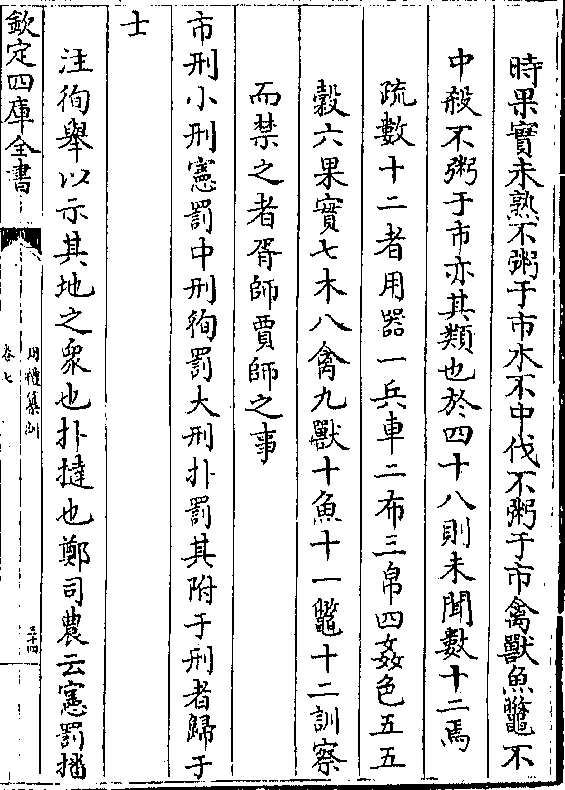 時果實未熟不粥于市水不中伐不粥于市禽獸魚鼈不
中殺不粥于市亦其類也於四十八則未聞數十二焉
疏數十二者用器一兵車二布三帛四姦色五五
穀六果實七木八禽九獸十魚十一鼈十二訓察
而禁之者胥師賈師之事
市刑小刑憲罰中刑徇罰大刑扑罰其附于刑者歸于
士
注徇舉以示其地之衆也扑撻也鄭司農云憲罰播
欽定四庫全書
周禮纂訓
卷七
三十四